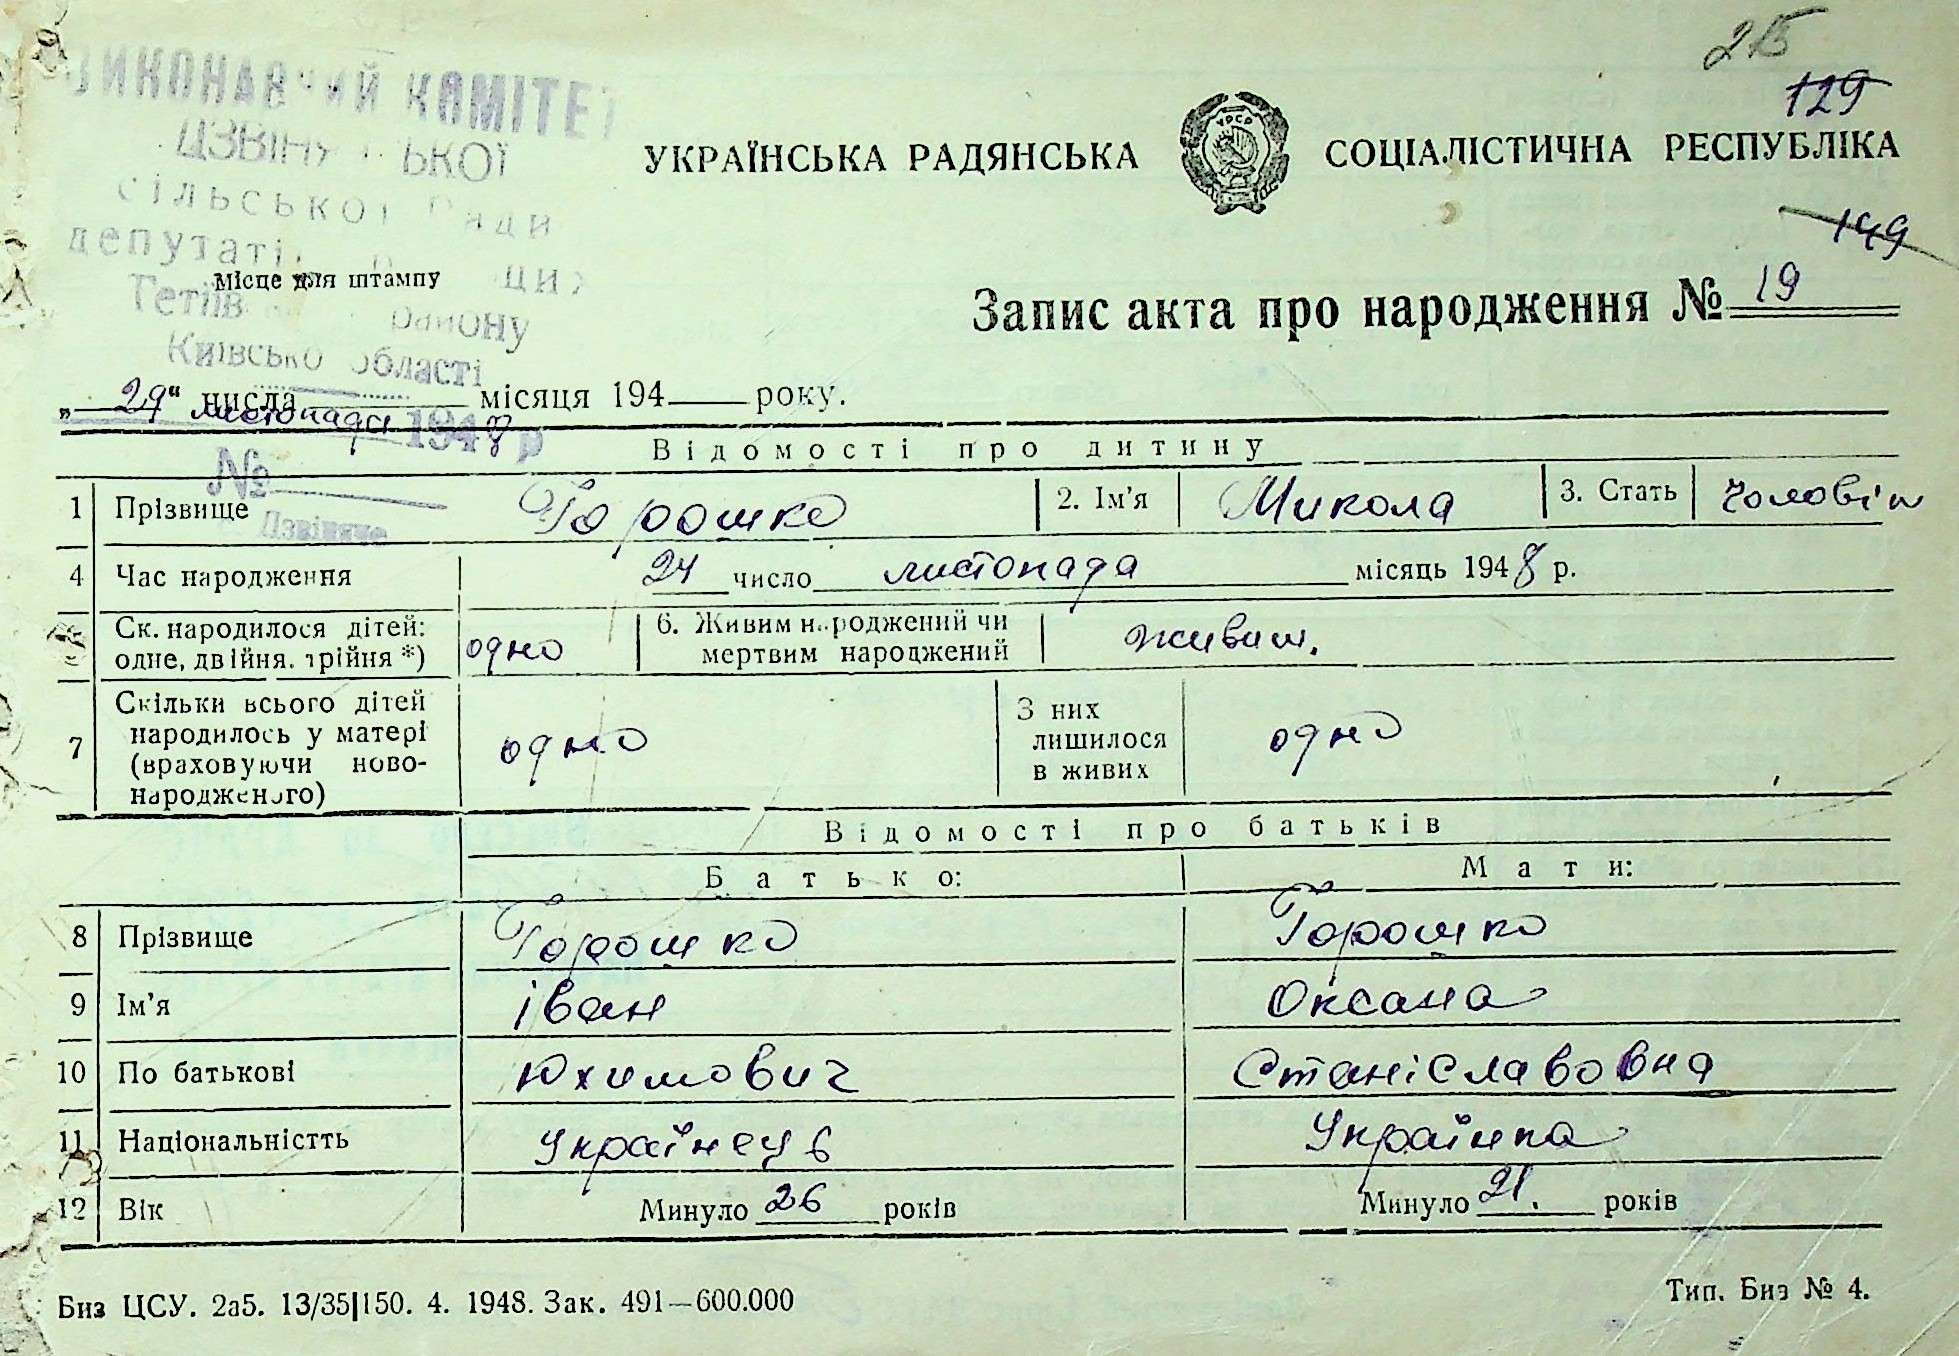 215
129
ВИКОНАВЧИЙ КОМІТЕТ
УКРАЇНСЬКА РАДЯНСЬКА СОЦІАЛІСТИЧНА РЕСПУБЛІКА
сільської Ради
149
Місце для штампу
Запис акта про народження № 19
району
області
„29“ числа місяця 194 року.
листопада 1948 р
№
Відомості про дитину
Дзвіняче
1 Прізвище Горошко 2. Ім'я Микола 3. Стать чоловік
4 Час народження 24 число листопада місяць 1948 р.
Ск. народилося дітей: одно 6. Живим народжений чи живим.
одне, двійня. трійня *) мертвим народжений
Скільки всього дітей З них
7 народилось у матері одно лишилося одно
(враховуючи ново- в живих
народженого)
Відомості про батьків
Батько: Мати:
8 Прізвище Горошко Горошко
9 Ім'я Іван Оксана
10 По батькові Юхимович Станіславовна
11 Національністть Українець Українка
12 Вік Минуло 26 років Минуло 21. років
Биз ЦСУ. 2а5. 13/35|150. 4. 1948. Зак. 491—600.000 Тип. Биз № 4.